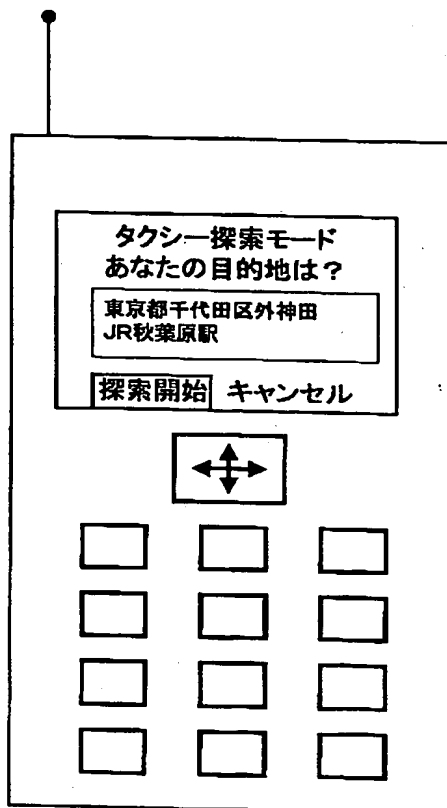 タクシー探索モード
あなたの目的地は？
東京都千代田区外神田
JR秋葉原駅
探索開始 キャンセル